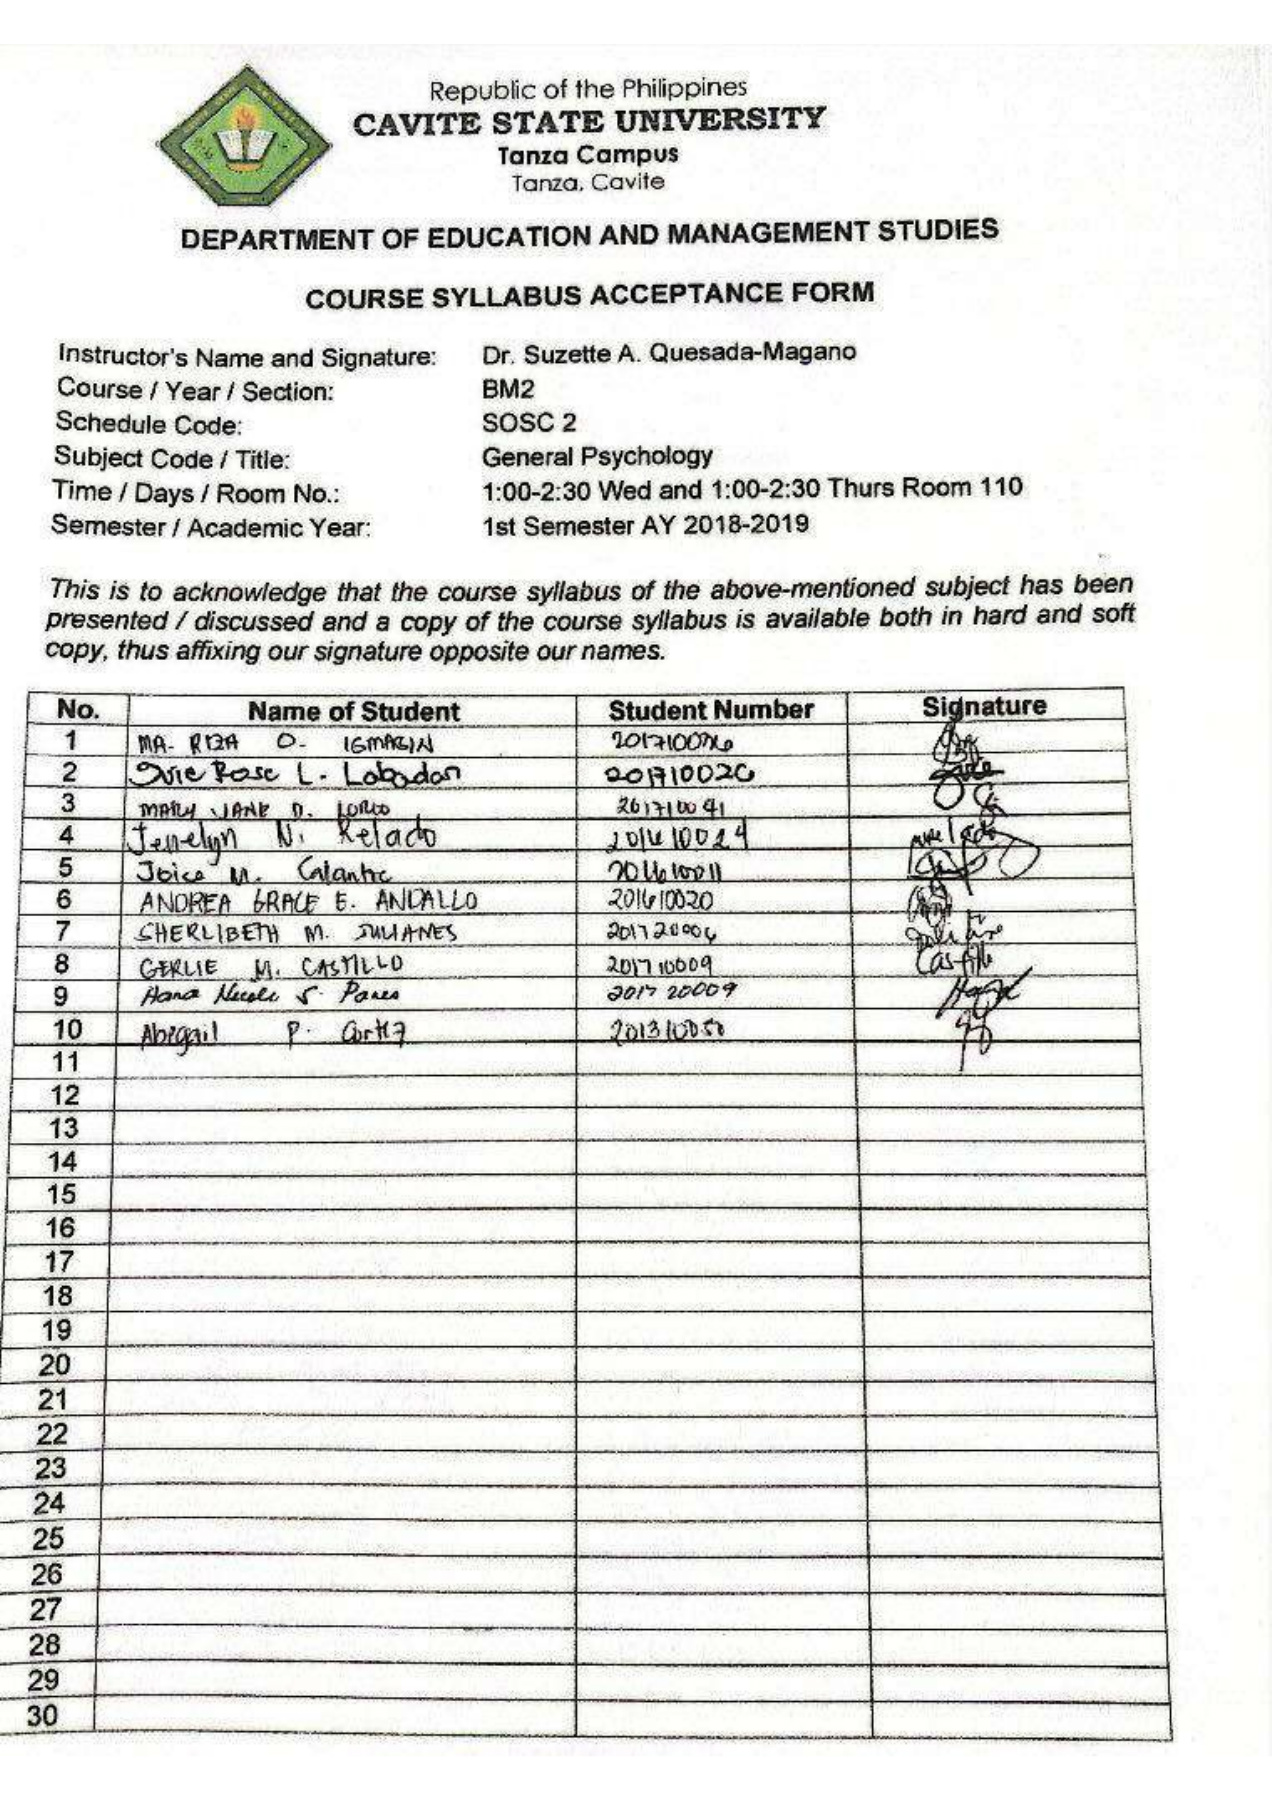 Republic of the Philippines
CAVITE STATE UNIVERSITY
Tanza Campus
Tanza, Cavite
DEPARTMENT OF EDUCATION AND MANAGEMENT STUDIES
COURSE SYLLABUS ACCEPTANCE FORM
Instructor's Name and Signature: Dr. Suzette A. Quesada-Magano
Course / Year / Section: BM2
Schedule Code: SOSC 2
Subject Code / Title: General Psychology
Time / Days / Room No.: 1:00-2:30 Wed and 1:00-2:30 Thurs Room 110
Semester / Academic Year: 1st Semester AY 2018-2019
This is to acknowledge that the course syllabus of the above-mentioned subject has been
presented / discussed and a copy of the course syllabus is available both in hard and soft
copy, thus affixing our signature opposite our names.
No. Name of Student Student Number Signature
1 MA. RIZA O. IGMASIN
2 Rose L. Labadan 201710026
3 MARY JANE D. 201710041
4 Jennelyn N. Relado 201610024
5 Joice M. Calantic 201610011
6 ANDREA GRACE E. ANDALLO 201610020
7 SHERLIBETH M. JULIANES 201720006
8 GERLIE M. CASTILLO 201710009 Castillo
9 Hana Nicole S. Pares 201720009
10 Abigail P. Cortez 201310050
11
12
13
14
15
16
17
18
19
20
21
22
23
24
25
26
27
28
29
30